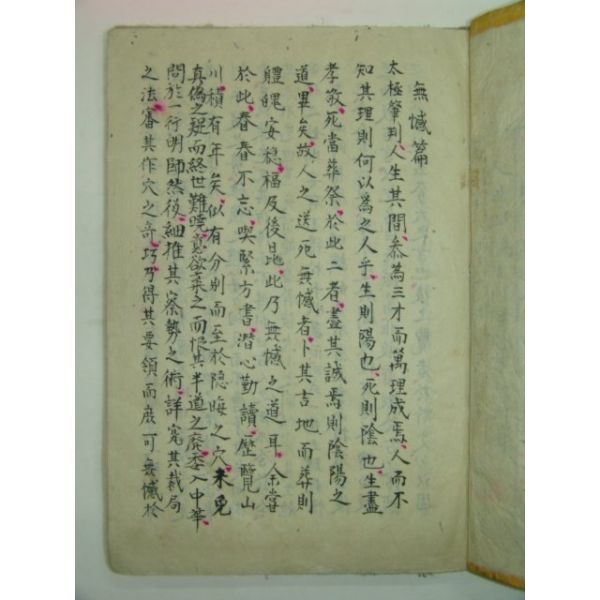 無憾篇
太極肇判人生其間叅為三才而萬理成焉人而不
知其理則何以為之人乎生則陽也死則陰也生盡
孝敬死當葬祭於此二者盡其誠焉則陰陽之
道畢矣故人之送死無憾者卜其吉地而葬則
軆魄安穏福及後昆此乃無憾之道耳余嘗
於此眷眷不忘喫緊方書潜心勤讀歷覽山
川積有年矣似有分別而至於隠晦之穴未免
真偽之疑而終世難曉意欲棄之而恨其半道之廢委入中華
問於一行明師然後細推其察勢之術詳究其裁局
之法審其作穴之奇巧乃得其要領而庶可無憾於